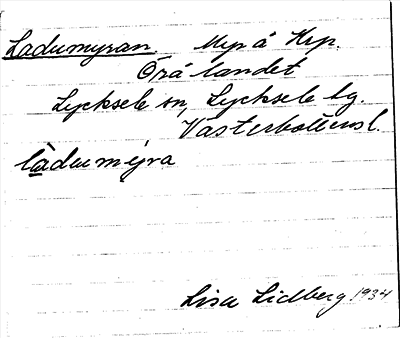 Ladumyran. Myr å Krp.
Örålandet
Lycksele sn, Lycksele lg.
Västerbottensl.
làdumỳra
Lisa Lidberg 1934